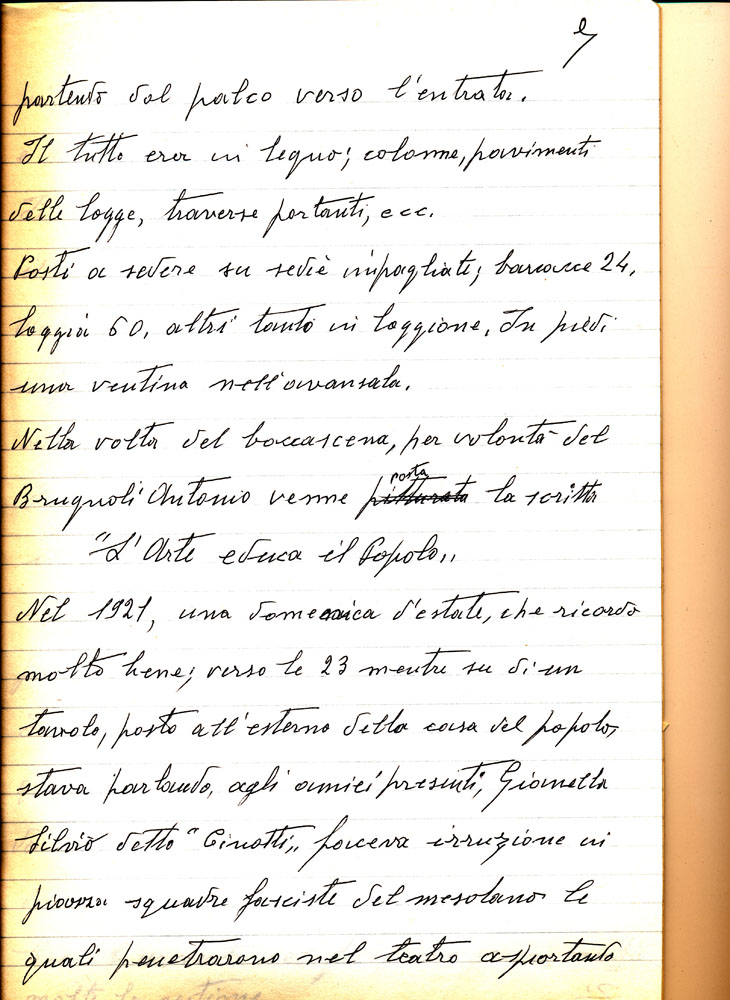 partendo dal palco verso l'entrata.
Il tutto era in legno; colonne, pavimenti
delle logge, traverse portanti, ecc.
Posti a sedere su sedie impagliate; barcacce 24,
loggia 60, altri tanti in loggione. In piedi
una ventina nell'avansala.
Nella volta del boccascena, per volontà del
Brugnoli Antonio venne posta la scritta
"L'Arte educa il Popolo"
Nel 1921, una domenica d'estate, che ricordo
molto bene; verso le 23 mentre su di un
tavolo, posto all'esterno della casa del popolo,
stava parlando, agli amici presenti, Gianella
Silvio detto "Cinotti" faceva irruzione in
piazza squadre fasciste del mesolano le
quali penetrarono nel teatro asportando